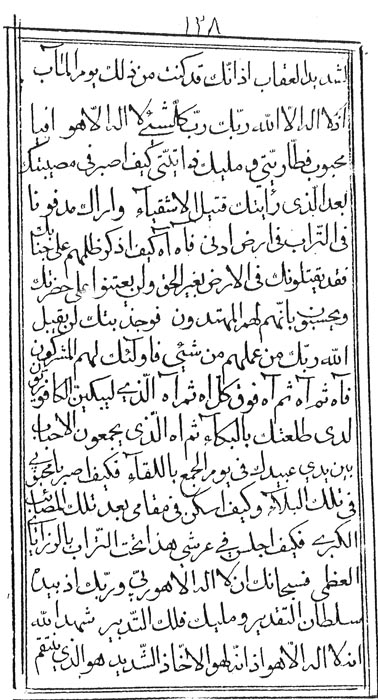 ١٢٨
لشديد العقاب اذ انك قد كنت من ذلك يوم المآب
انه لا اله الا الله ربك رب كلشیئ لا اله الا هو افيا
محبوب فطاريتي و مليك ذاتيتي كيف اصبر في مصيبتك
بعد الذي رأيتك قتيل الاشقياء واراك مدفونا
في التراب في ارض ادنى فآه آه كيف اذكر ظلمهم على جنابك
فقد يقتلونك في الارض بغير الحق ولن يعتنوا على حضرتك
ويحسبون بانهم لهم المهتدون فوحدانيتك لن يقبل
الله ربك من عملهم من شیئ فاولئك لهم المشركون
فآه ثم آه ثم آه فوق كل آه ثم آه الذي ليبكين الكافورييون
لدى طلعتك بالبكآء ثم آه الذي يجمعون الاحباب
بين يدي عبيدك في يوم الجمع باللقآء فكيف اصبر يا محبوبي
في تلك البلآء وكيف اسكن في مقامي بعد تلك المصائب
الكبرى فكيف اجلس في عرشي هذا تحت التراب بالرزايا
العظمى فسبحانك ان لا اله الا هو ربي وربك اذ بيده
سلطان التقدير ومليك فلك التدبير شهد الله
انه لا اله الا هو اذ انه لهو الاخاذ الشديد هو الذي ينتقم